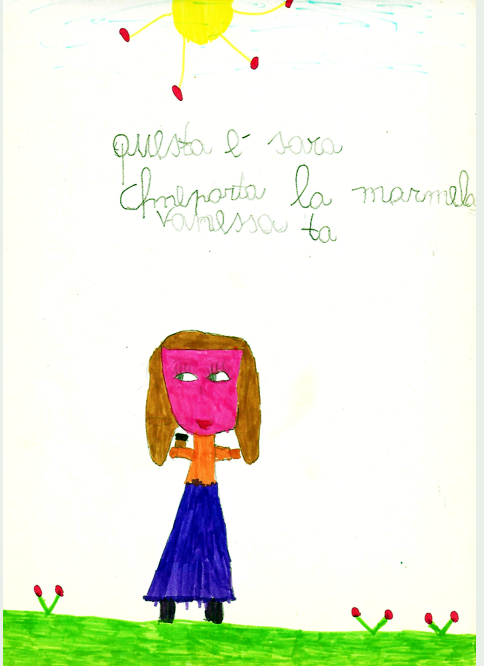 questa è sara
chmeporta la marmela
vanessa ta